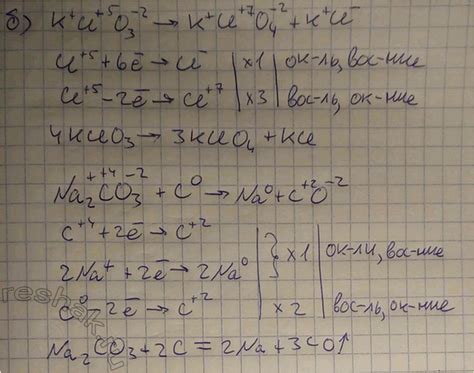 б) K⁺Cl⁺⁵O₃⁻² → K⁺Cl⁺⁷O₄⁻² + K⁺Cl⁻
Cl⁺⁵ + 6ē → Cl⁻ | ×1 | ок-ль, вос-ние
Cl⁺⁵ - 2ē → Cl⁺⁷ | ×3 | вос-ль, ок-ние
4KClO₃ → 3KClO₄ + KCl
Na₂⁺C⁺⁴O₃⁻² + C⁰ → Na⁰ + C⁺²O⁻²
C⁺⁴ + 2ē → C⁺²
2Na⁺ + 2ē → 2Na⁰ } ×1 | ок-ли, вос-ние
C⁰ - 2ē → C⁺² | ×2 | вос-ль, ок-ние
Na₂CO₃ + 2C = 2Na + 3CO↑